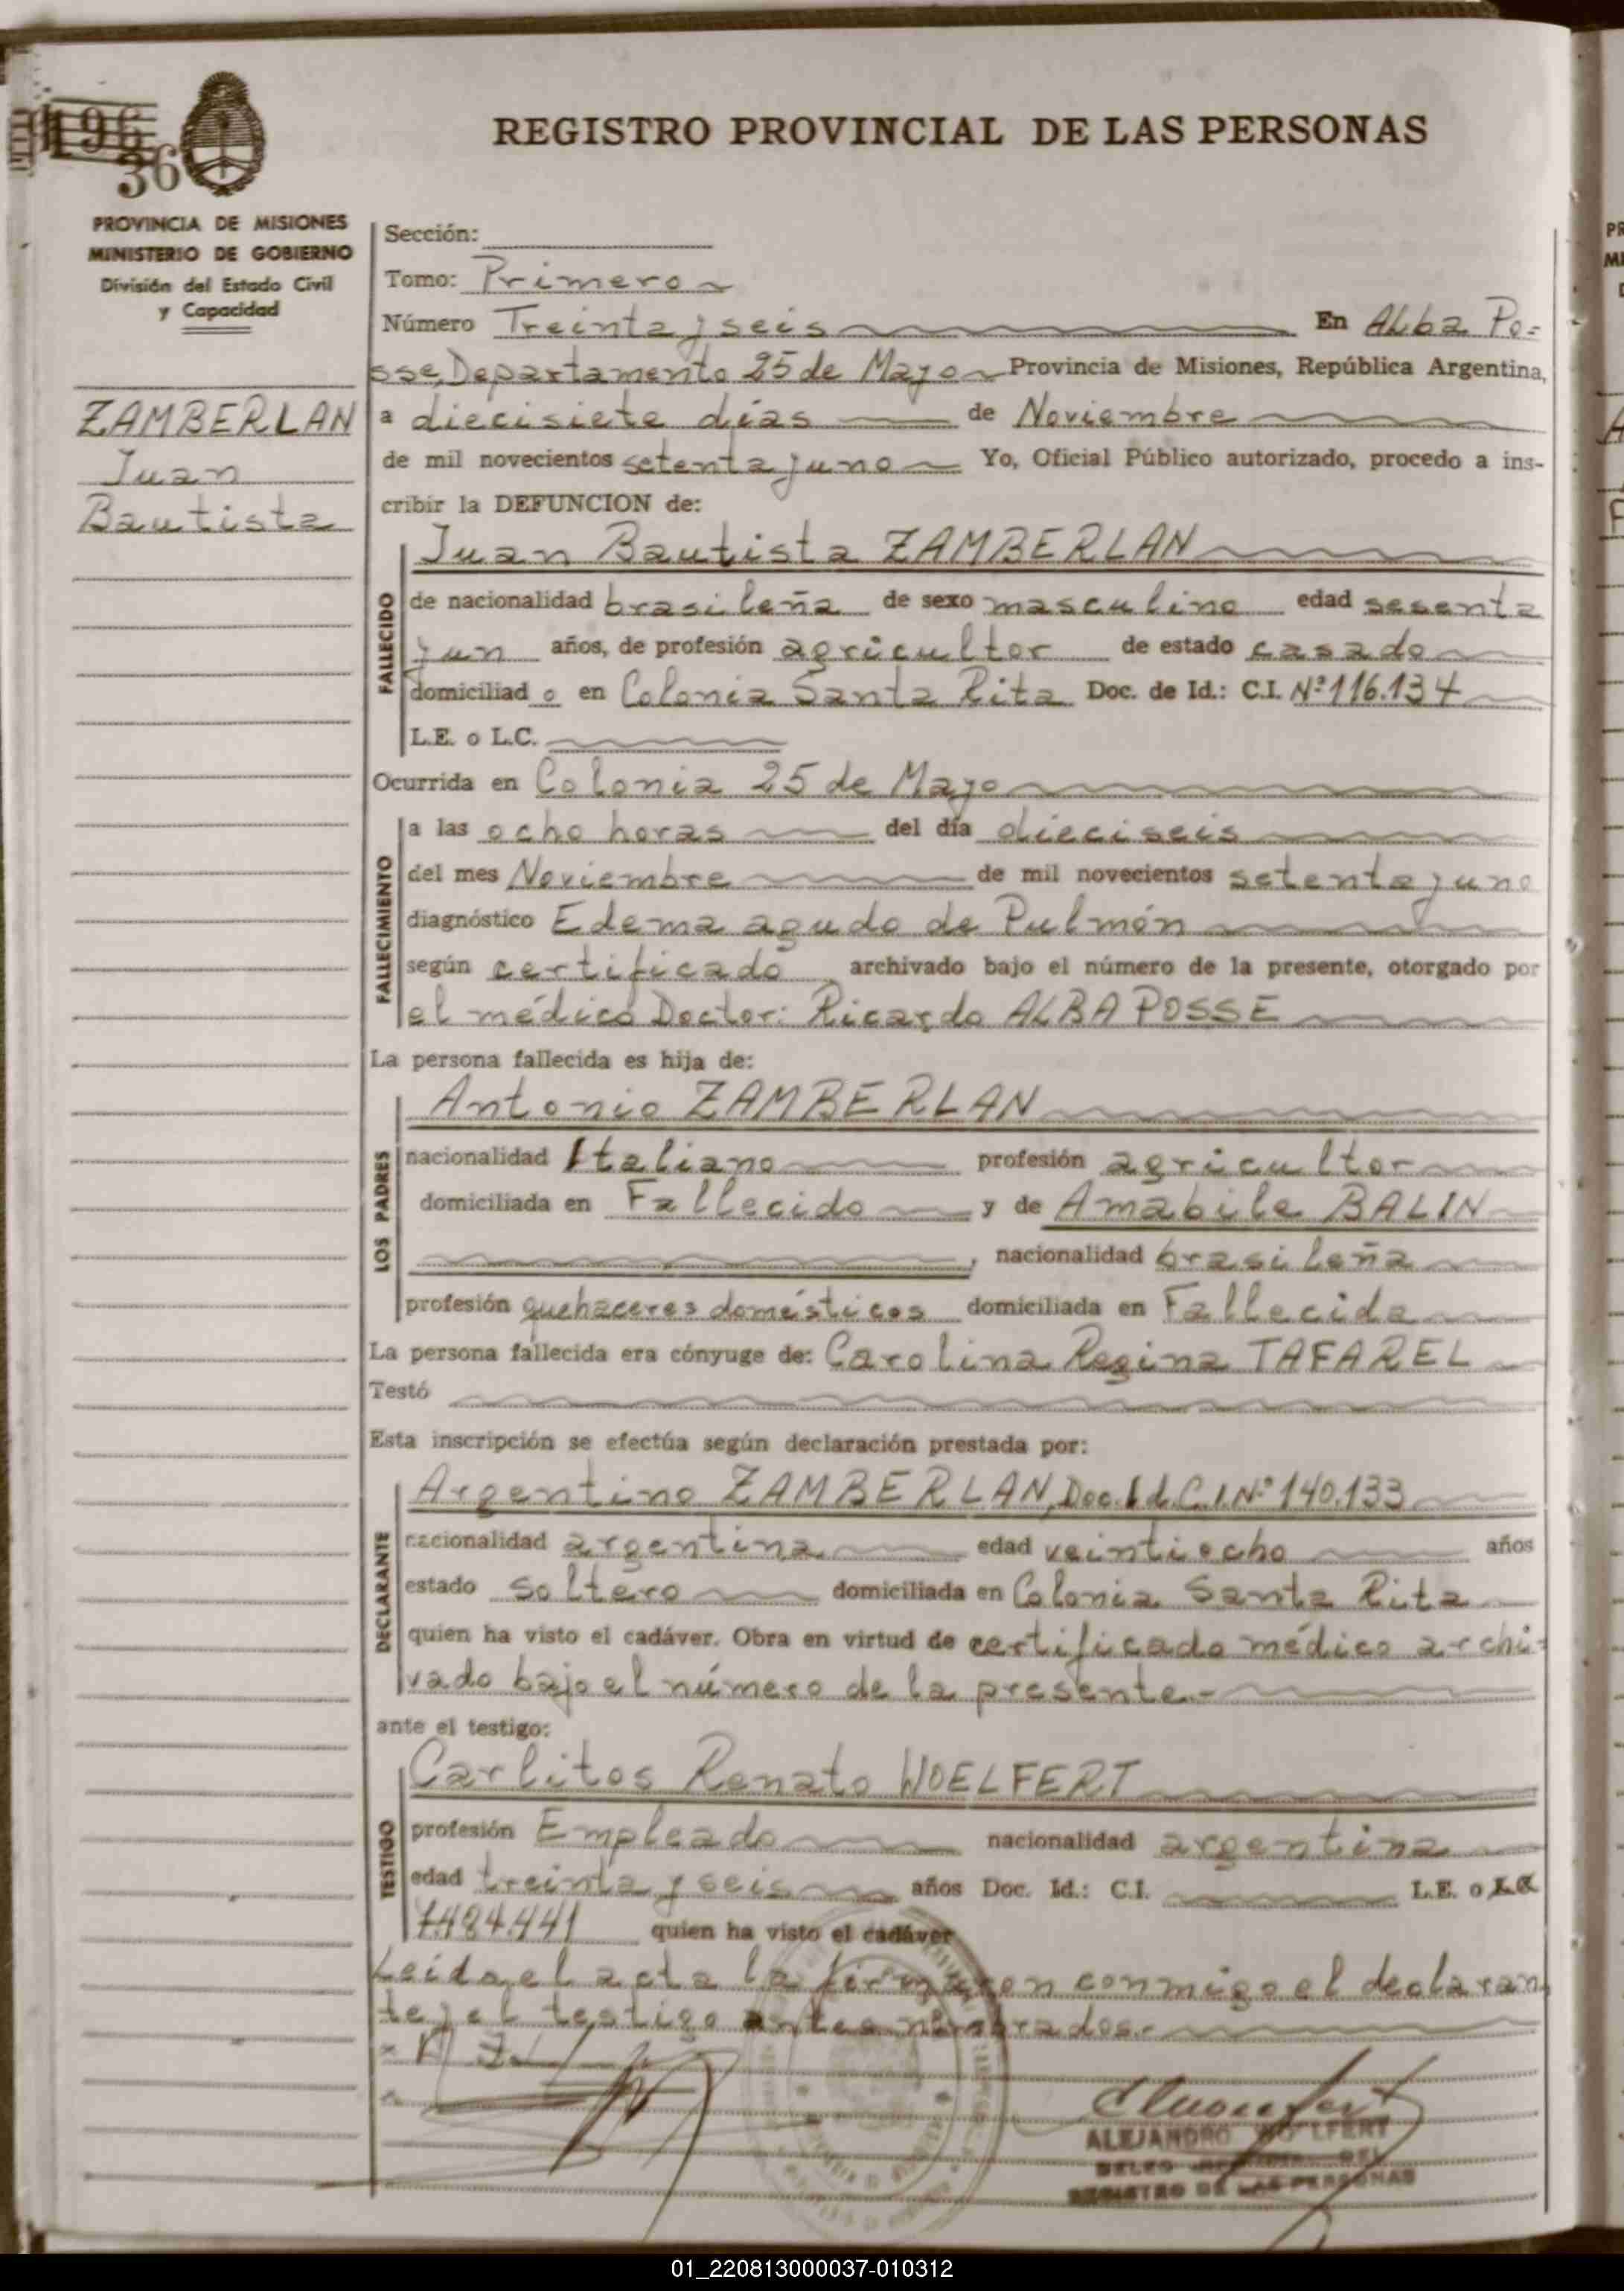 REGISTRO PROVINCIAL DE LAS PERSONAS
36
PROVINCIA DE MISIONES
MINISTERIO DE GOBIERNO
División del Estado Civil
y Capacidad
ZAMBERLAN
Juan
Bautista
Sección:
Tomo: Primero
Número Treinta y seis En Alba Po=
sse, Departamento 25 de Mayo Provincia de Misiones, República Argentina,
a diecisiete días de Noviembre
de mil novecientos setenta y uno Yo, Oficial Público autorizado, procedo a ins-
cribir la DEFUNCION de:
Juan Bautista ZAMBERLAN
FALLECIDO
de nacionalidad brasileña de sexo masculino edad sesenta
y un años, de profesión agricultor de estado casado
domiciliad o en Colonia Santa Rita Doc. de Id.: C.I. Nº 116.134
L.E. o L.C.
Ocurrida en Colonia 25 de Mayo
FALLECIMIENTO
a las ocho horas del día dieciseis
del mes Noviembre de mil novecientos setenta y uno
diagnóstico Edema agudo de Pulmón
según certificado archivado bajo el número de la presente, otorgado por
el médico Doctor: Ricardo ALBA POSSE
La persona fallecida es hija de:
Antonio ZAMBERLAN
LOS PADRES
nacionalidad Italiano profesión agricultor
domiciliada en Fallecido y de Amabile BALIN
, nacionalidad brasileña
profesión quehaceres domésticos domiciliada en Fallecida
La persona fallecida era cónyuge de: Carolina Regina TAFAREL
Testó
Esta inscripción se efectúa según declaración prestada por:
Argentino ZAMBERLAN, Doc. Id. C.I. Nº 140.133
DECLARANTE
nacionalidad argentina edad veintiocho años
estado soltero domiciliada en Colonia Santa Rita
quien ha visto el cadáver. Obra en virtud de certificado médico archi-
vado bajo el número de la presente.-
ante el testigo:
Carlitos Renato WOELFERT
TESTIGO
profesión Empleado nacionalidad argentina
edad treinta y seis años Doc. Id.: C.I. L.E. o L.C.
7.484.441 quien ha visto el cadáver
Leida el acta la firmaron conmigo el declaran
te y el testigo antes nombrados.-
ALEJANDRO WOELFERT
REGISTRO DE LAS PERSONAS
01_220813000037-010312